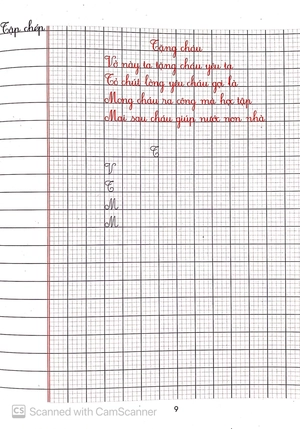 Tập chép
Tặng cháu
Vở này ta tặng cháu yêu ta
Tỏ chút lòng yêu cháu gọi là
Mong cháu ra công mà học tập
Mai sau cháu giúp nước non nhà
T
V
T
M
M
9
CS Scanned with CamScanner